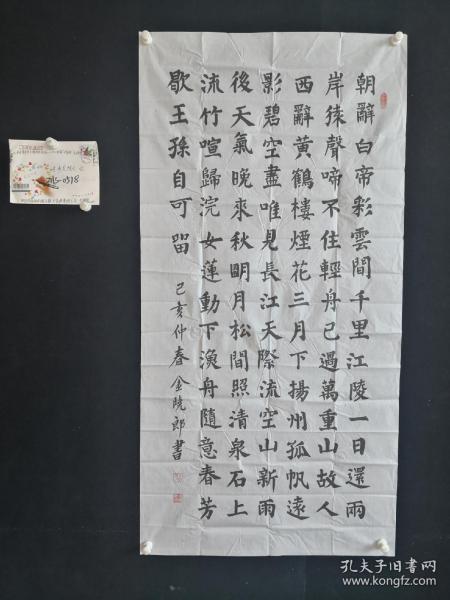 朝辭白帝彩雲間千里江陵一日還兩
岸猿聲啼不住輕舟已過萬重山故人
西辭黃鶴樓煙花三月下揚州孤帆遠
影碧空盡唯見長江天際流空山新雨
後天氣晚來秋明月松間照清泉石上
流竹喧歸浣女蓮動下漁舟隨意春芳
歇王孫自可留
己亥仲春金曉郎書
孔夫子旧书网
www.kongfz.com